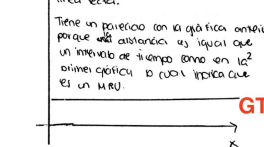 línea recta.
Tiene un parecido con la gráfica anterior
porque la distancia es igual que
un intervalo de tiempo como en la
primer gráfica lo cual indica que
es un MRU.
2
GT
x